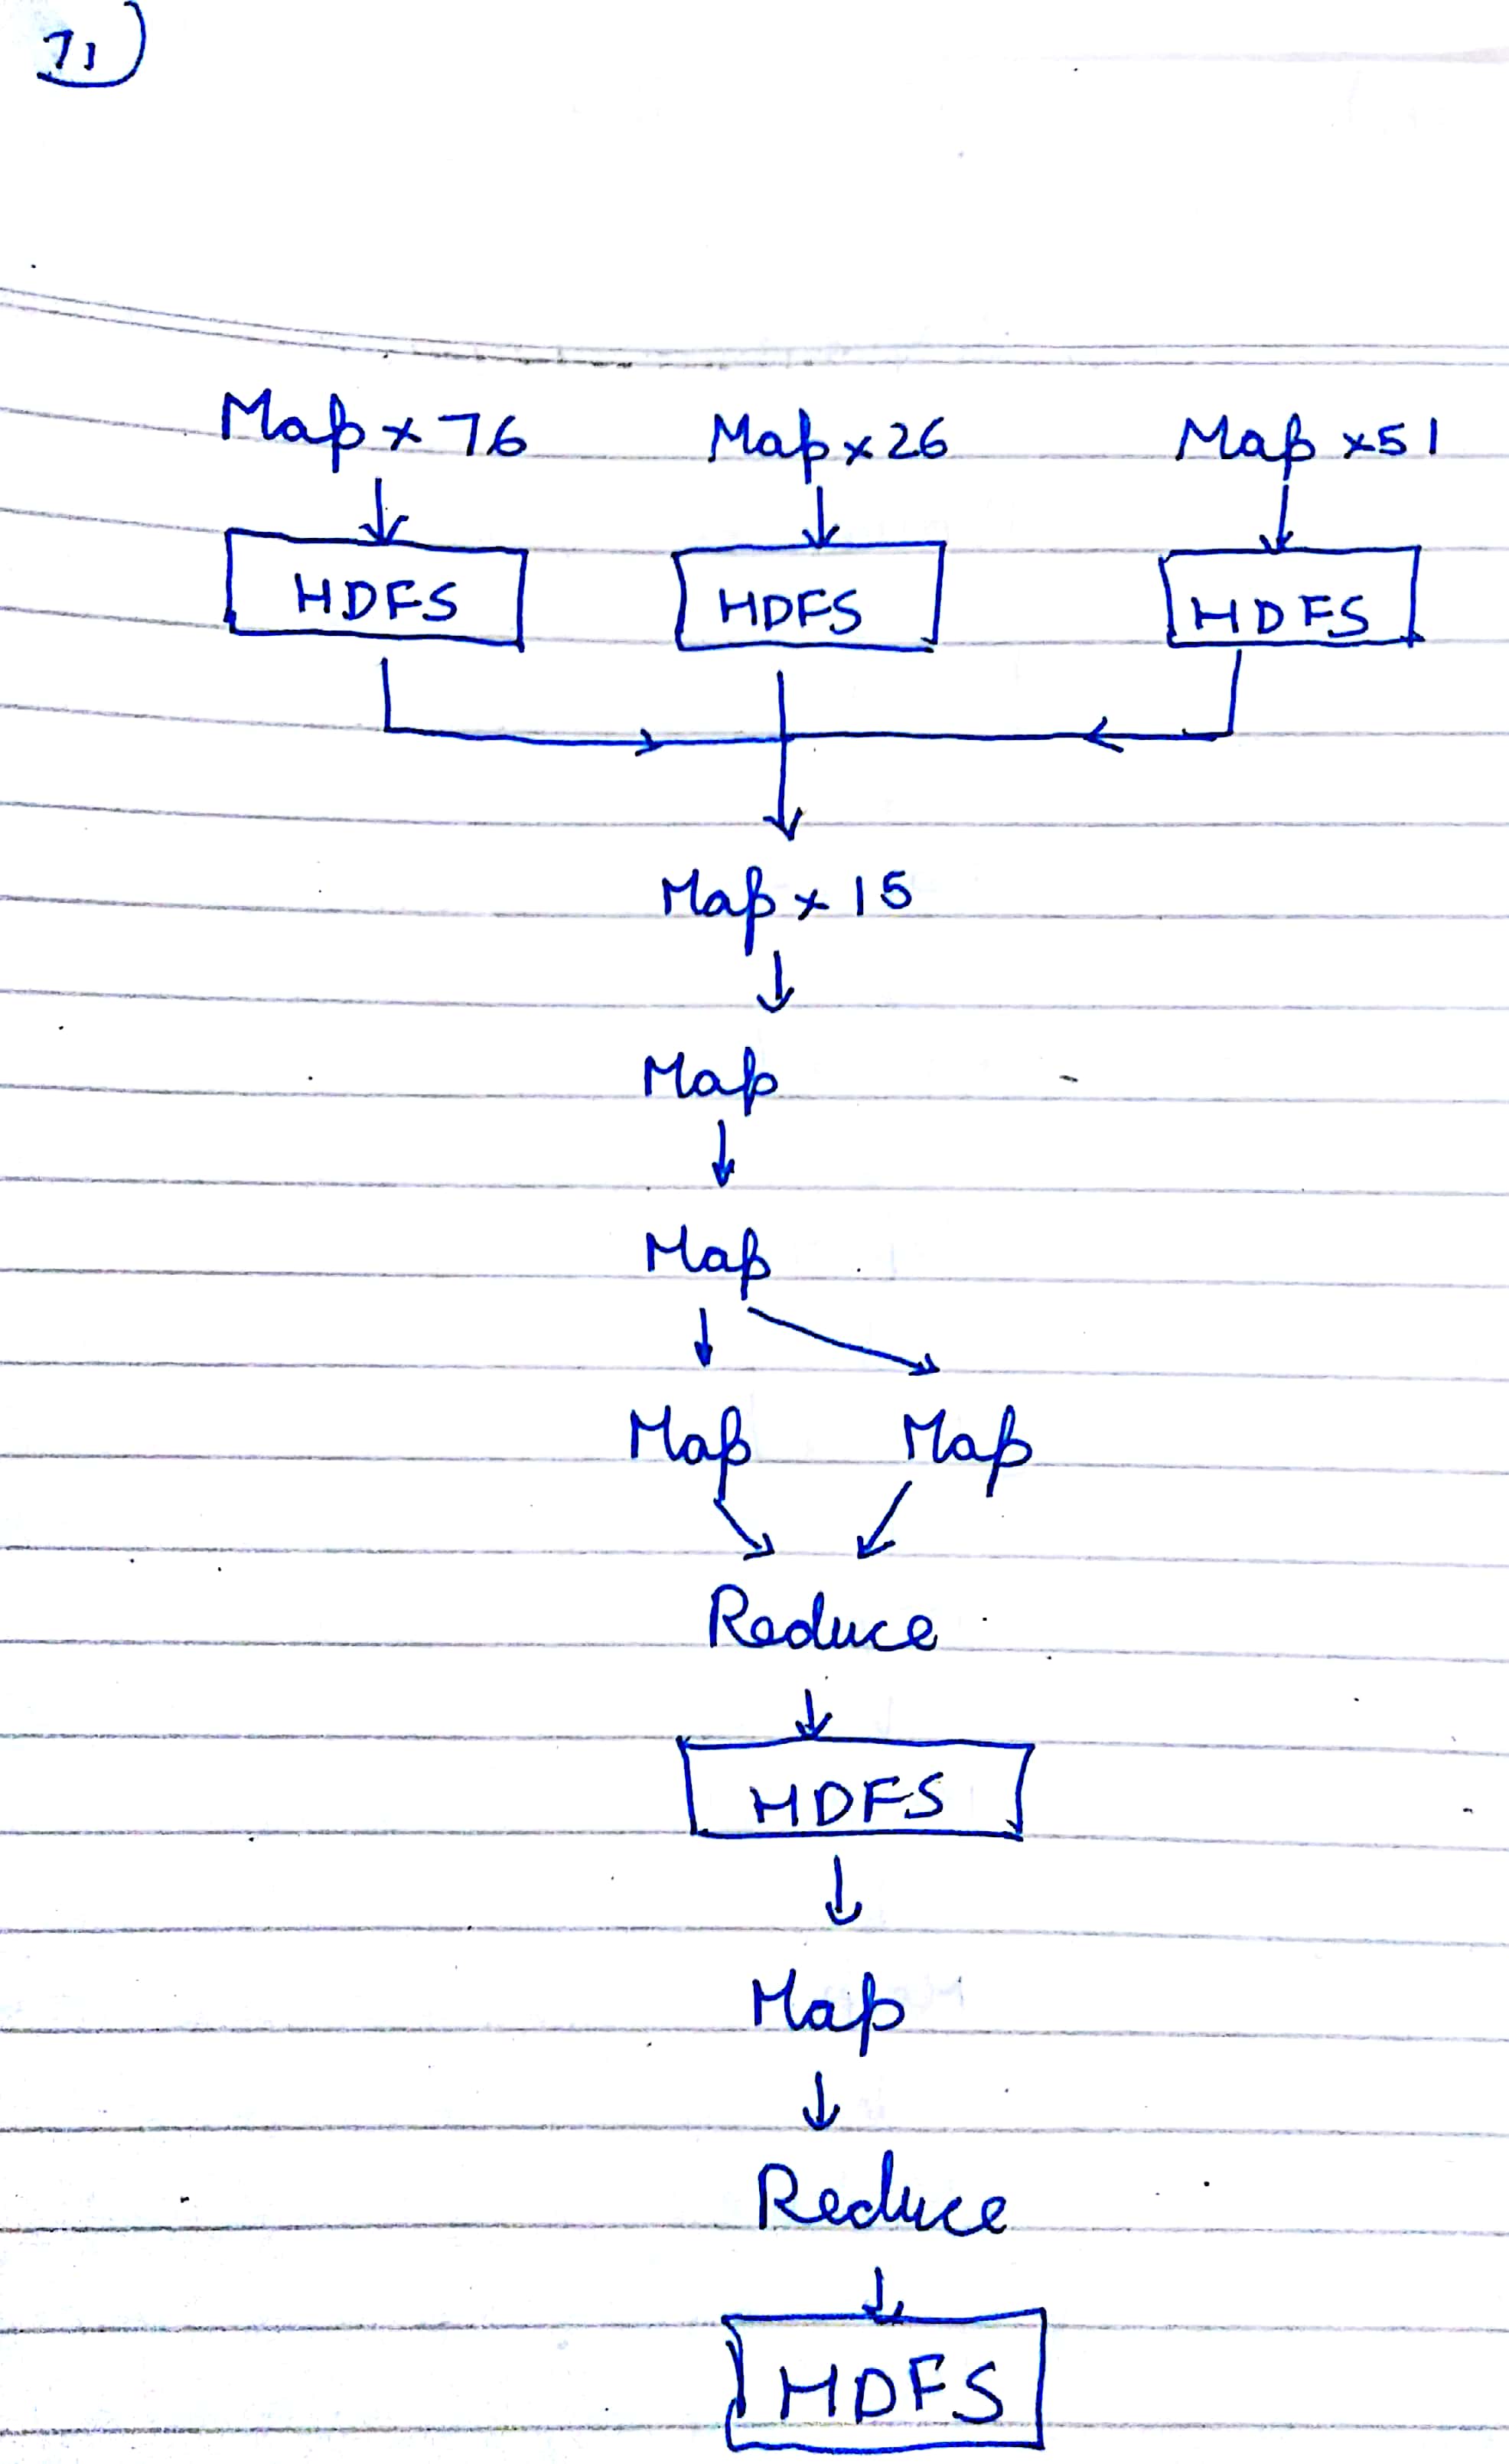 71
Map x 76 Map x 26 Map x 51
HDFS HDFS HDFS
Map x 15
Map
Map
Map Map
Reduce
HDFS
Map
Reduce
HDFS